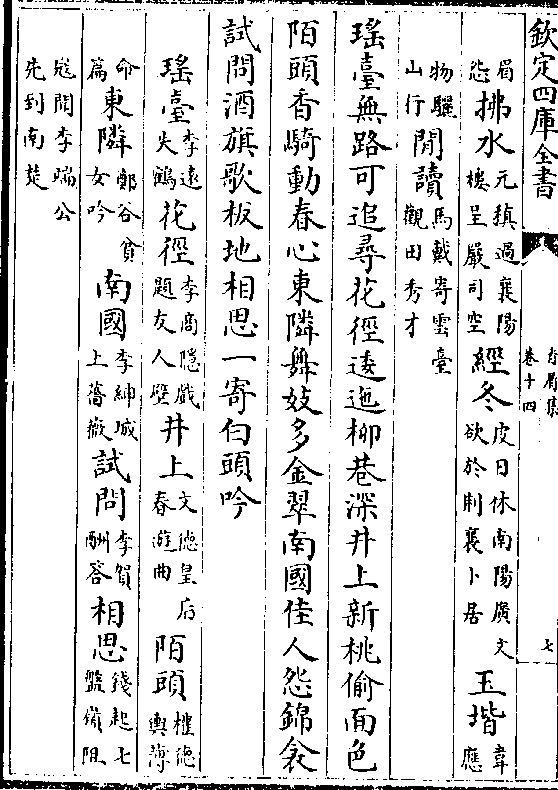 欽定四庫全書
香屑集
卷十四
七
眉怨 拂水 元稹過襄陽樓呈嚴司空 經冬 皮日休南陽廣文欲於荆襄卜居 玉堦 韋應
物驪山行 閒讀 馬戴寄雲臺觀田秀才
瑤臺無路可追尋花徑逶迤柳巷深井上新桃偷面色
陌頭香騎動春心東隣舞妓多金翠南國佳人怨錦衾
試問酒旗歌板地相思一寄白頭吟
瑤臺 李遠失鶴 花徑 李商隱戲題友人壁 井上 文德皇后春遊曲 陌頭 權德輿薄
命篇 東隣 鄭谷貧女吟 南國 李紳城上薔薇 試問 李賀酬答 相思 錢起七盤嶺阻
寇聞李端公先到南楚